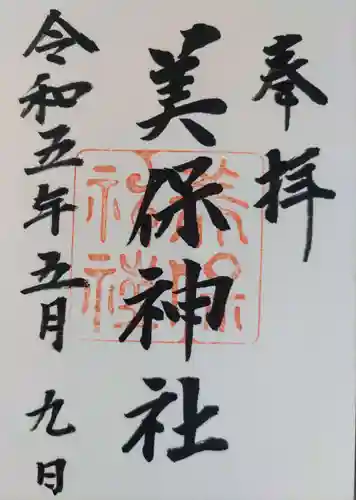 奉拝
美保神社
令和五年五月九日
美保
神社